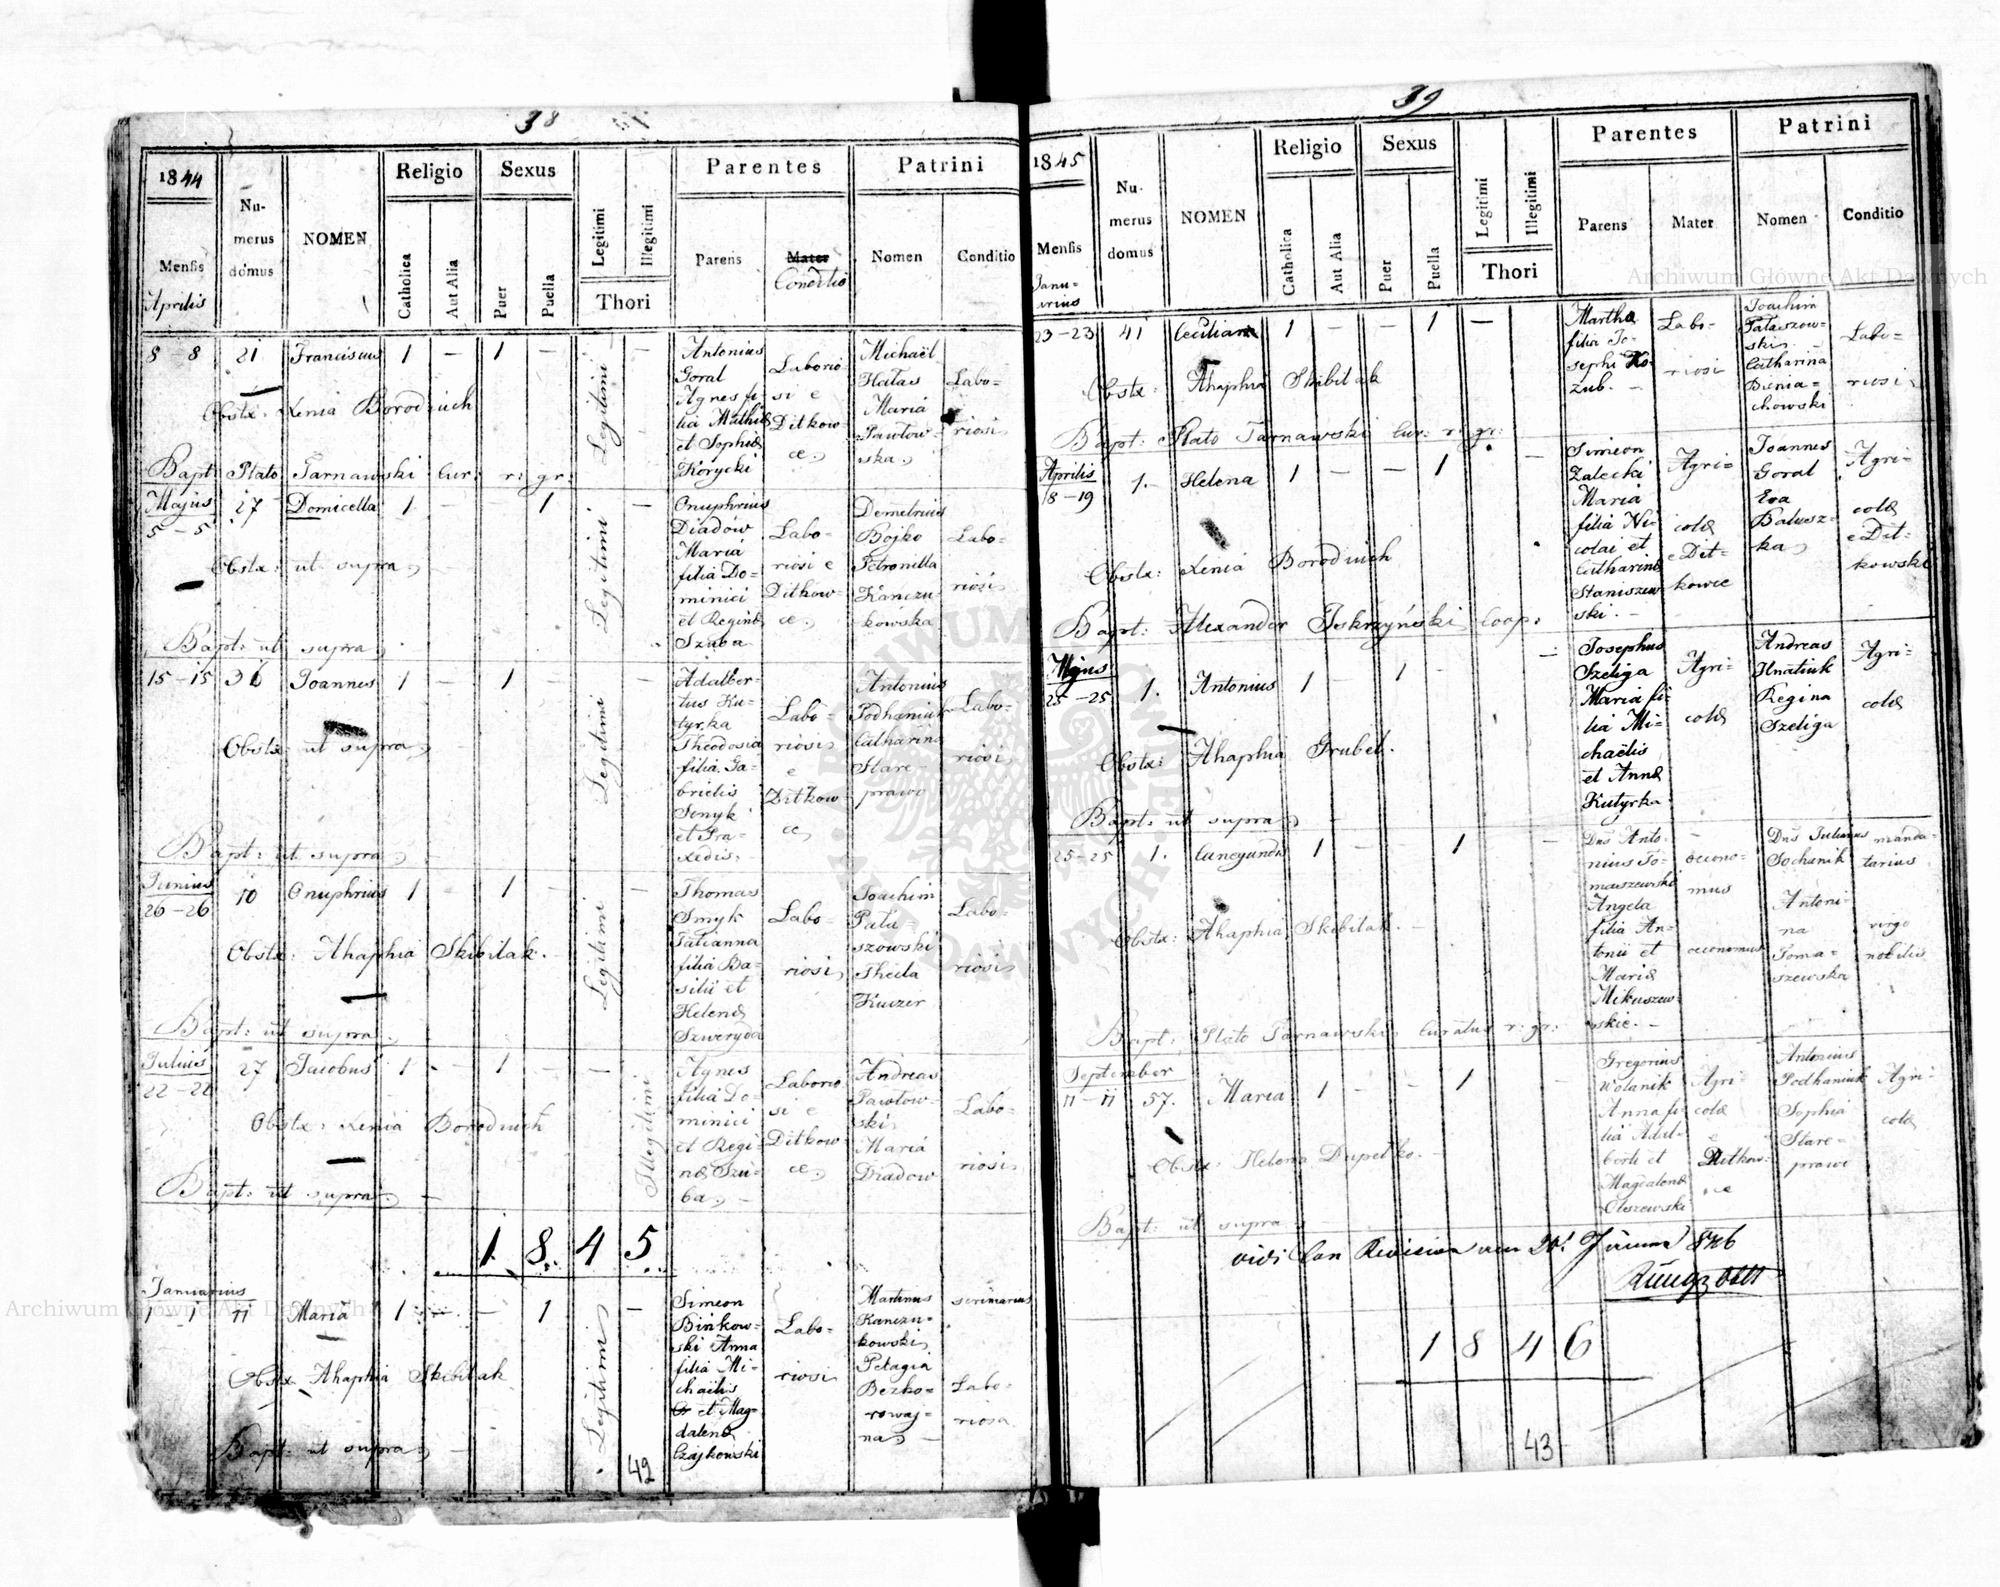 38
1844
Mensis
Aprilis
Numerus domus
NOMEN
Religio
Catholica
Aut Alia
Sexus
Puer
Puella
Legitimi
Illegitimi
Thori
Parentes
Parens
Mater
Conditio
Patrini
Nomen
Conditio
8 - 8 21 Franciscus 1 - 1 - Legitimi -
Antonius
Goral
Agnes fi
lia Mathiæ
et Sophiæ
Korycki
Laborio
si e
Ditkow-
ce
Michaël
Hałas
Maria
Pawłow-
ska
Labo-
riosi
Obstx: Xenia Borodiuch
Bapt: Plato Tarnawski Cur: r: gr:
Majus
5 - 5 27 Domicella 1 - 1 Legitimi -
Onuphrius
Diadów
Maria
filia Do-
minici
et Reginæ
Szuba
Labo-
riosi e
Ditkow-
ce
Demetrius
Bojko
Petronilla
Kanczu-
kówska
Labo-
riosi
Obstx: ut supra
Bapt: ut supra
15 - 15 36 Joannes 1 - 1 - Legitimi -
Adalber-
tus Ku-
tyrka
Theodosia
filia Ga-
brielis
Senyk
et Pra-
xedis
Labo-
riosi
e
Ditkow-
ce
Antonius
Podhaniuk
Catharina
Stare-
prawo
Labo-
riosi
Obstx: ut supra
Bapt: ut supra
Junius
26 - 26 10 Onuphrius 1 - 1 - Legitimi -
Thomas
Smyk
Tatianna
filia Ba-
silii et
Helenæ
Szweryda
Labo-
riosi
Joachim
Pala-
szowski
Thecla
Kuczer
Labo-
riosi
Obstx: Ahaphia Skibilak.
Bapt: ut supra
Julius
22 - 22 27 Jacobus 1 - 1 - - Illegitimi
Agnes
filia Do-
minici
et Regi-
næ Szu-
ba
Laborio
si e
Ditkow-
ce
Andreas
Pawłow-
ski
Maria
Diadow
Labo-
riosi
Obstx: Xenia Borodiuch
Bapt: ut supra
1845
Januarius
1 - 1 11 Maria 1 - - 1 Legitimi -
Simeon
Binkow-
ski Anna
filia Mi-
chaëlis
et Mag-
dalenæ
Czajkowski
Labo-
riosi
Martinus
Kanczu-
kowski
Pelagia
Bezko-
rowaj-
na
Labo-
riosa
Obstx Ahaphia Skibilak
Bapt: ut supra
42
39
1845
Mensis
Janu-
arius
Numerus domus
NOMEN
Religio
Catholica
Aut Alia
Sexus
Puer
Puella
Legitimi
Illegitimi
Thori
Parentes
Parens
Mater
Patrini
Nomen
Conditio
23 - 23 41 1 - - 1 -
Martha
filia Jo-
sephi Ko-
zub. -
Labo-
riosi
Joachim
Palaszow-
ski
Catharina
Bienia-
chowski
Labo-
riosi
Obstx: Ahaphia Skibilak
Bapt: Plato Tarnawski Cur: r: gr:
Aprilis
18 - 19 1. Helena 1 - - 1 -
Simeon
Zalecki
Maria
filia Ni-
colai et
Catharinæ
Staniszew
ski. -
Agri-
colæ
e Dit-
kowce
Joannes
Goral
Eva
Balusz-
ka
Agri-
colæ
e Dit-
kowski
Obstx: Xenia Borodiuch
Bapt: Alexander Jskrzyński Coop:
Majus
25 - 25 1. Antonius 1 1 - -
Josephus
Szeliga
Maria fi-
lia Mi-
chaëlis
et Annæ
Kutyrka
Agri-
colæ
Andreas
Hnatiuk
Regina
Szeliga
Agri-
colæ
Obstx: Ahaphia Grubel.
Bapt: ut supra
25-25 1. Cunegunda 1 - - 1 -
Dns Anto-
nius To-
maszewski
Angela
filia An-
tonii et
Mariæ
Mikuszew-
skie. -
oecono-
mus
oeconomus
Dns Julianus
Sochanik
Antoni-
na
Toma-
szewska
manda-
tarius
virgo
nobilis
Obstx: Ahaphia Skibilak. -
Bapt: Plato Tarnawski Curatus r: gr:
September
11 - 11 57. Maria 1 - - 1 -
Gregorius
Wolanik
Anna fi-
lia Adal-
berti et
Magdalenæ
Olszewski
Agri-
colæ
e
Ditkow-
ce
Antonius
Podhaniuk
Sophia
Stare-
prawo
Agri-
colæ
Obstx: Helena Dupelko. -
Bapt: ut supra
1846
43
Archiwum Główne Akt Dawnych
Archiwum Główne Akt Dawnych
ARCHIWUM GŁÓWNE AKT DAWNYCH